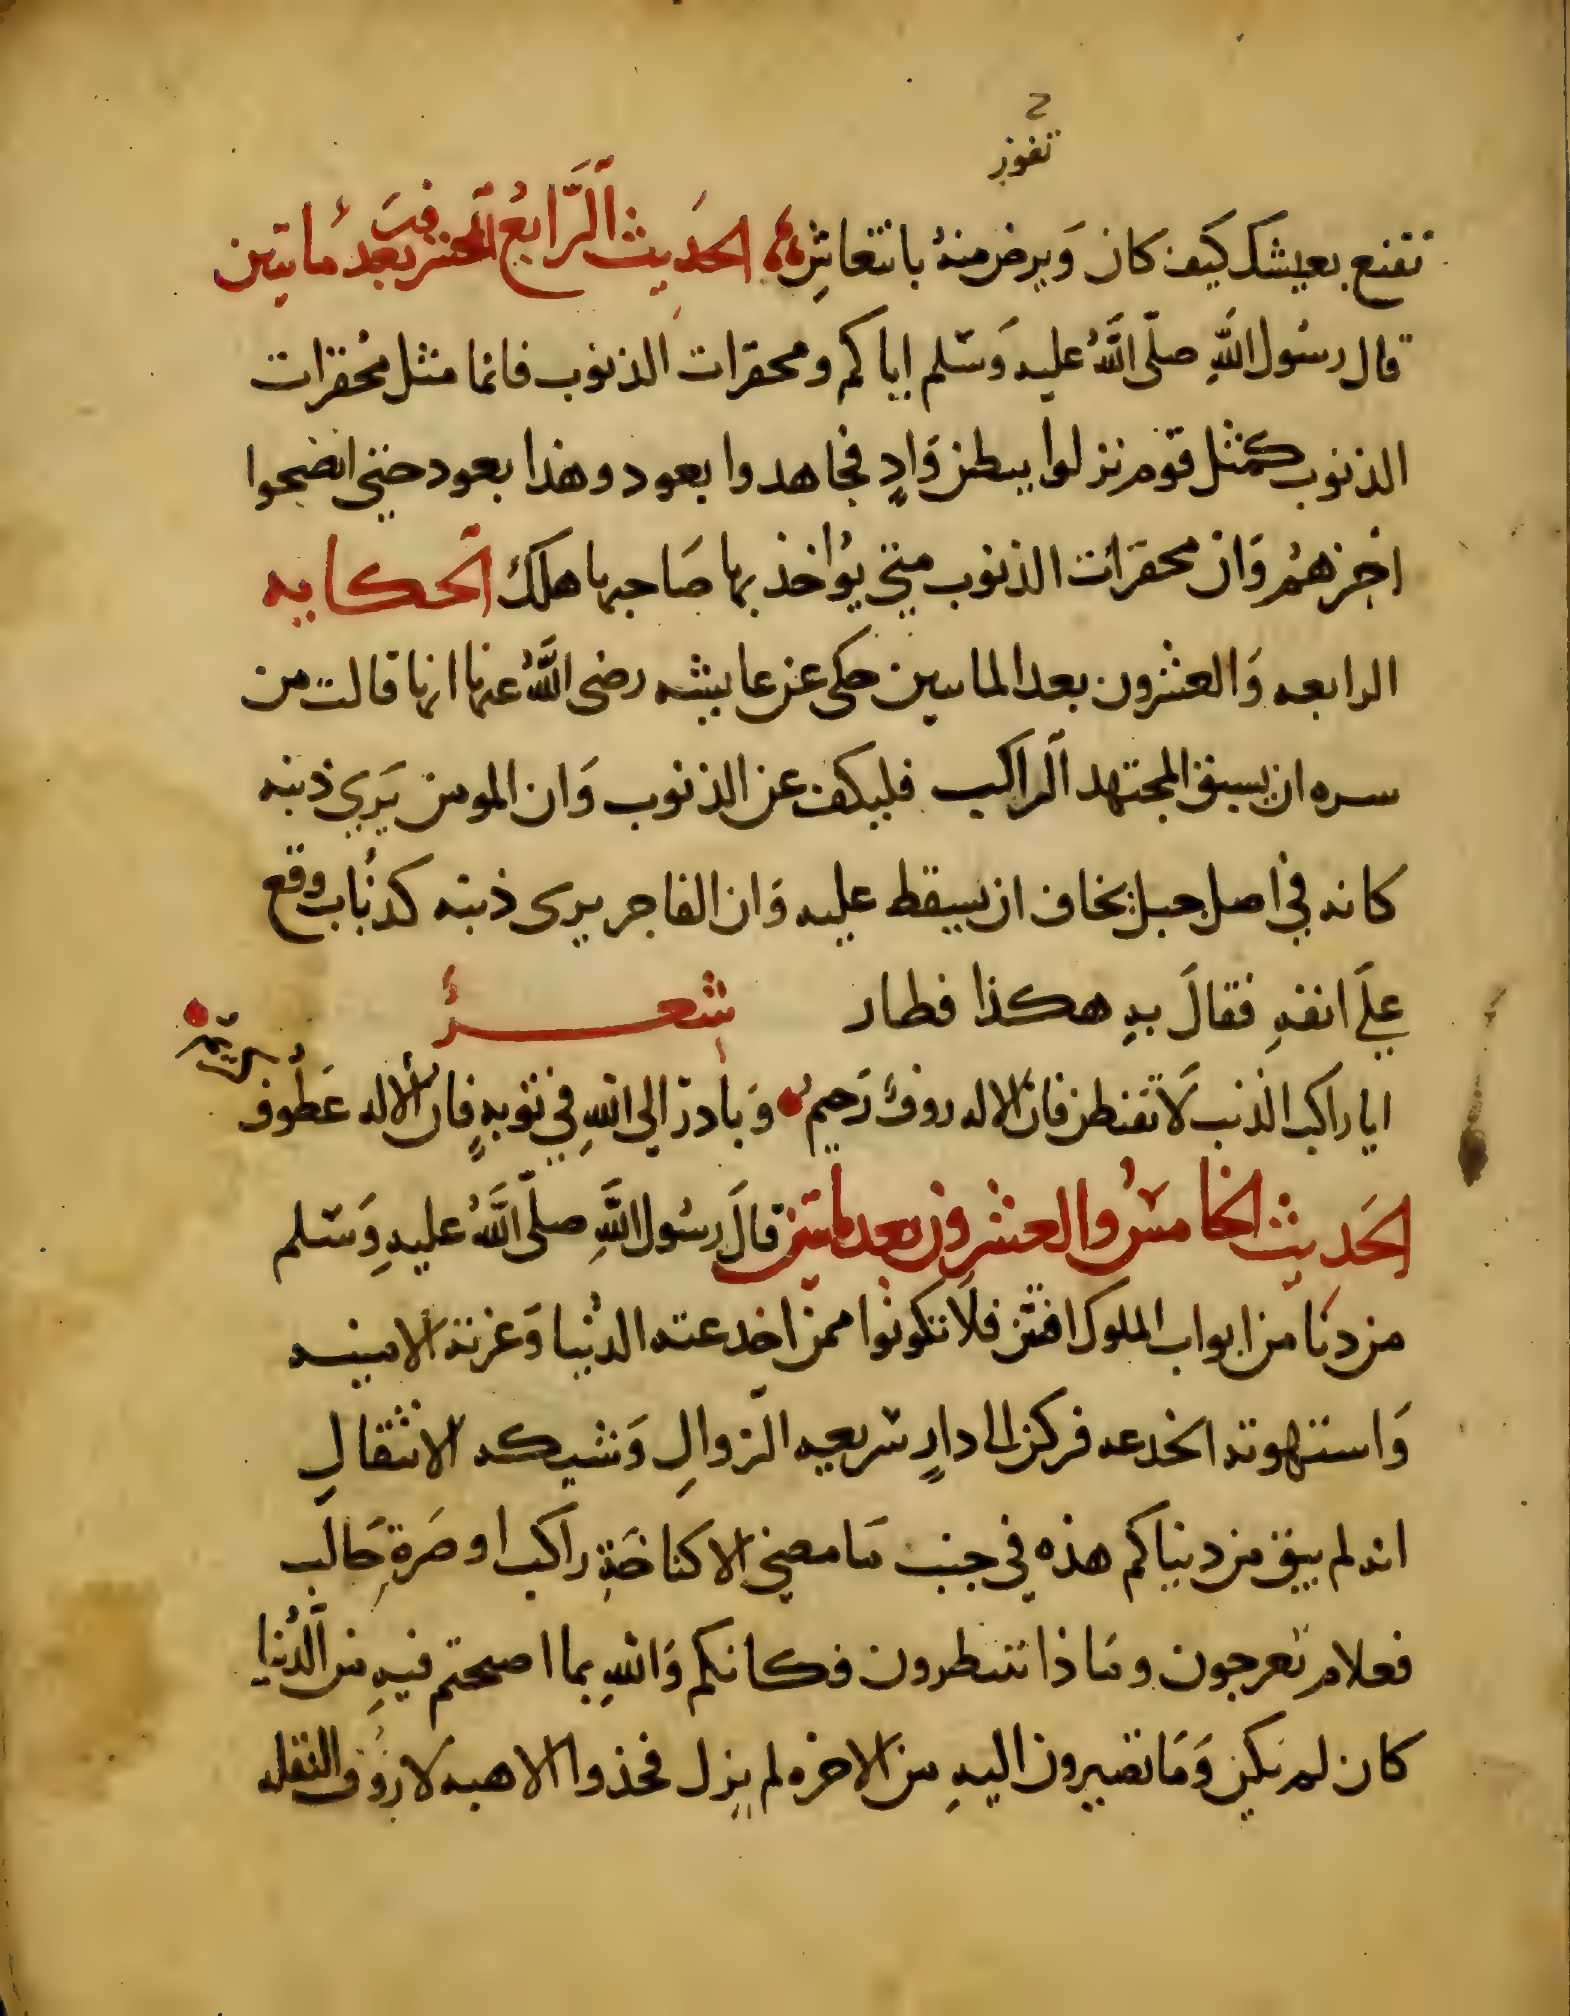 تفوز
تقنع بعيشك كيف كان وَيرض منهُ بانتعاشِ الحَديث الرَّابعُ العشرون بعدَ مأتين
قال رسُول اللَّهِ صلّى اللَّهُ عليه وَسَلم اياكم ومحقرات الذنوب فانما مثل مُحقرات
الذنوب كمثل قوم نزلوا ببطن وَادٍ فجاهدوا بعود وهذا بعود حتى انضجوا
اخبزهمُ وَان محقرات الذنوب متى يُواخذ بها صَاحبها هلك الحكايه
الرابعه وَالعشرون بعد المايتين حكى عن عايشه رضى اللَّهُ عنها انها قالت من
سره ان يسبق المجتهد الراكب فليكف عن الذنوب وَان المومن يَرى ذنبه
كانه في اصل جبل يخاف ان يسقط عليه وَان الفاجر يرى ذنبه كذُباب وقع
علَى انفهِ فقالَ بهِ هكذا فطار شعرٌ
ايا راكب الذنب لَا تقنطن فان الاله روفٌ رَحيم وَبادر الى اللهِ في توبهٍ فان الاله عَطُوف كريم
الحَديث الخامسُ والعشرون بعد مأتين قالَ رسُول اللَّهِ صلّى اللَّهُ عليهِ وَسَلم
من دنَا من ابواب الملوك افتتن فلَا تكونوا ممن اخدعته الدُنيا وَغرته الامنيه
وَاستهوته الخدعه فركن الى دارٍ سريعه الزوالِ وَشيكه الانتقالِ
انه لم يبق من دنياكم هذه في جنب مَا مضى الا كناخَةِ راكب او صَرةِ حَالب
فعلام تعرجون ومَاذا تنتظرون فكانكم وَاللهِ بما اصبحتم فيهِ من الدُنيا
كان لم يكن وَمَا تصيرون اليهِ من الاخره لم يزل فخذوا الاهبه لازُوف النقله